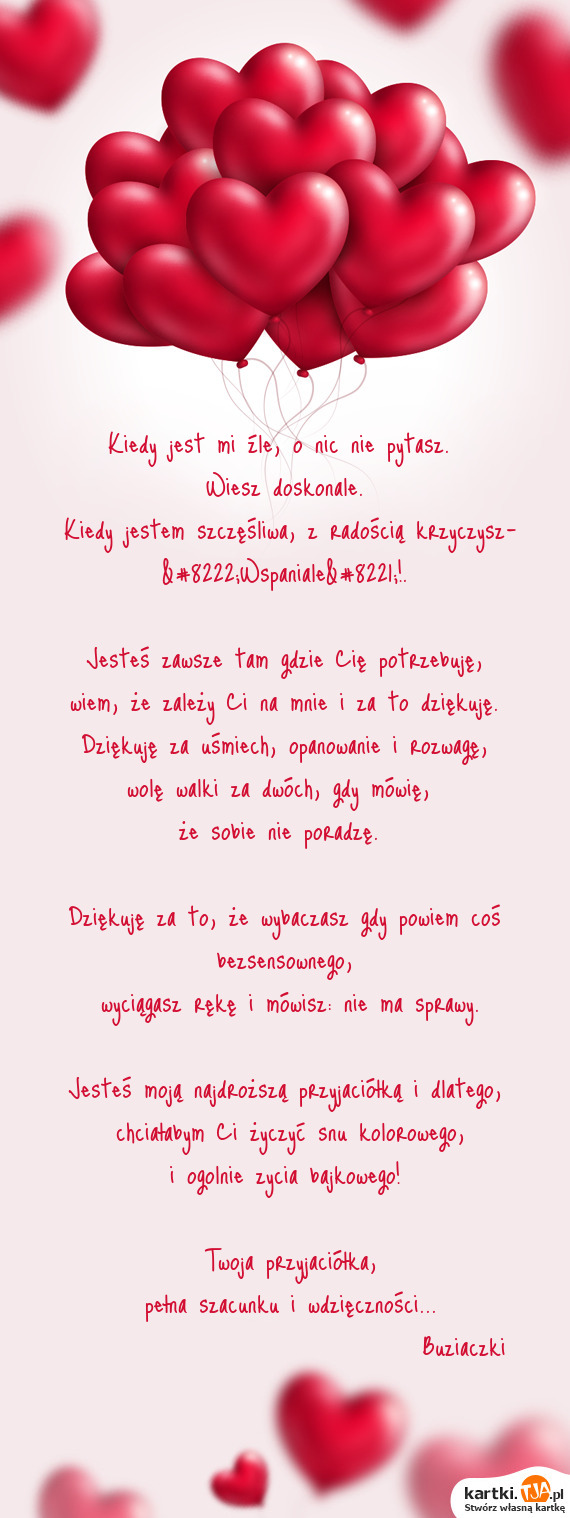 Kiedy jest mi źle, o nic nie pytasz.
Wiesz doskonale.
Kiedy jestem szczęśliwa, z radością krzyczysz-
&#8222;Wspaniale&#8221;!.
Jesteś zawsze tam gdzie Cię potrzebuję,
wiem, że zależy Ci na mnie i za to dziękuję.
Dziękuję za uśmiech, opanowanie i rozwagę,
wolę walki za dwóch, gdy mówię,
że sobie nie poradzę.
Dziękuję za to, że wybaczasz gdy powiem coś
bezsensownego,
wyciągasz rękę i mówisz: nie ma sprawy.
Jesteś moją najdroższą przyjaciółką i dlatego,
chciałabym Ci życzyć snu kolorowego,
i ogolnie zycia bajkowego!
Twoja przyjaciółka,
pełna szacunku i wdzięczności...
Buziaczki
kartki.TJA.pl
Stwórz własną kartkę